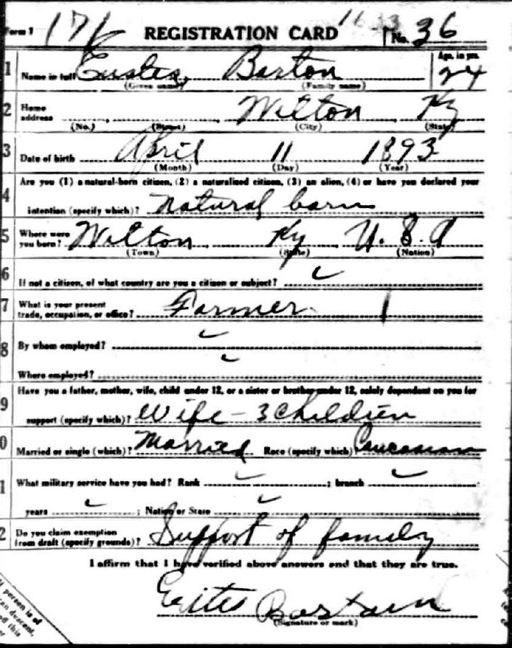 Form 1 171 REGISTRATION CARD No. 36
1 Name in full Barton Age, in yrs. 24
(Given name) (Family name)
2 Home address Wilton Ky
(No.) (Street) (City) (State)
3 Date of birth April 11 1893
(Month) (Day) (Year)
4 Are you (1) a natural-born citizen, (2) a naturalized citizen, (3) an alien, (4) or have you declared your
intention (specify which)? Natural born
5 Where were you born? Wilton Ky U.S.A
(Town) (State) (Nation)
6 If not a citizen, of what country are you a citizen or subject?
7 What is your present trade, occupation, or office? Farmer
8 By whom employed?
Where employed?
9 Have you a father, mother, wife, child under 12, or a sister or brother under 12, solely dependent on you for
support (specify which)? Wife - 3 children
0 Married or single (which)? Married Race (specify which) Caucasian
1 What military service have you had? Rank ; branch
years ; Nation or State
2 Do you claim exemption from draft (specify grounds)? Support of family
I affirm that I have verified above answers and that they are true.
(Signature or mark)
person is of